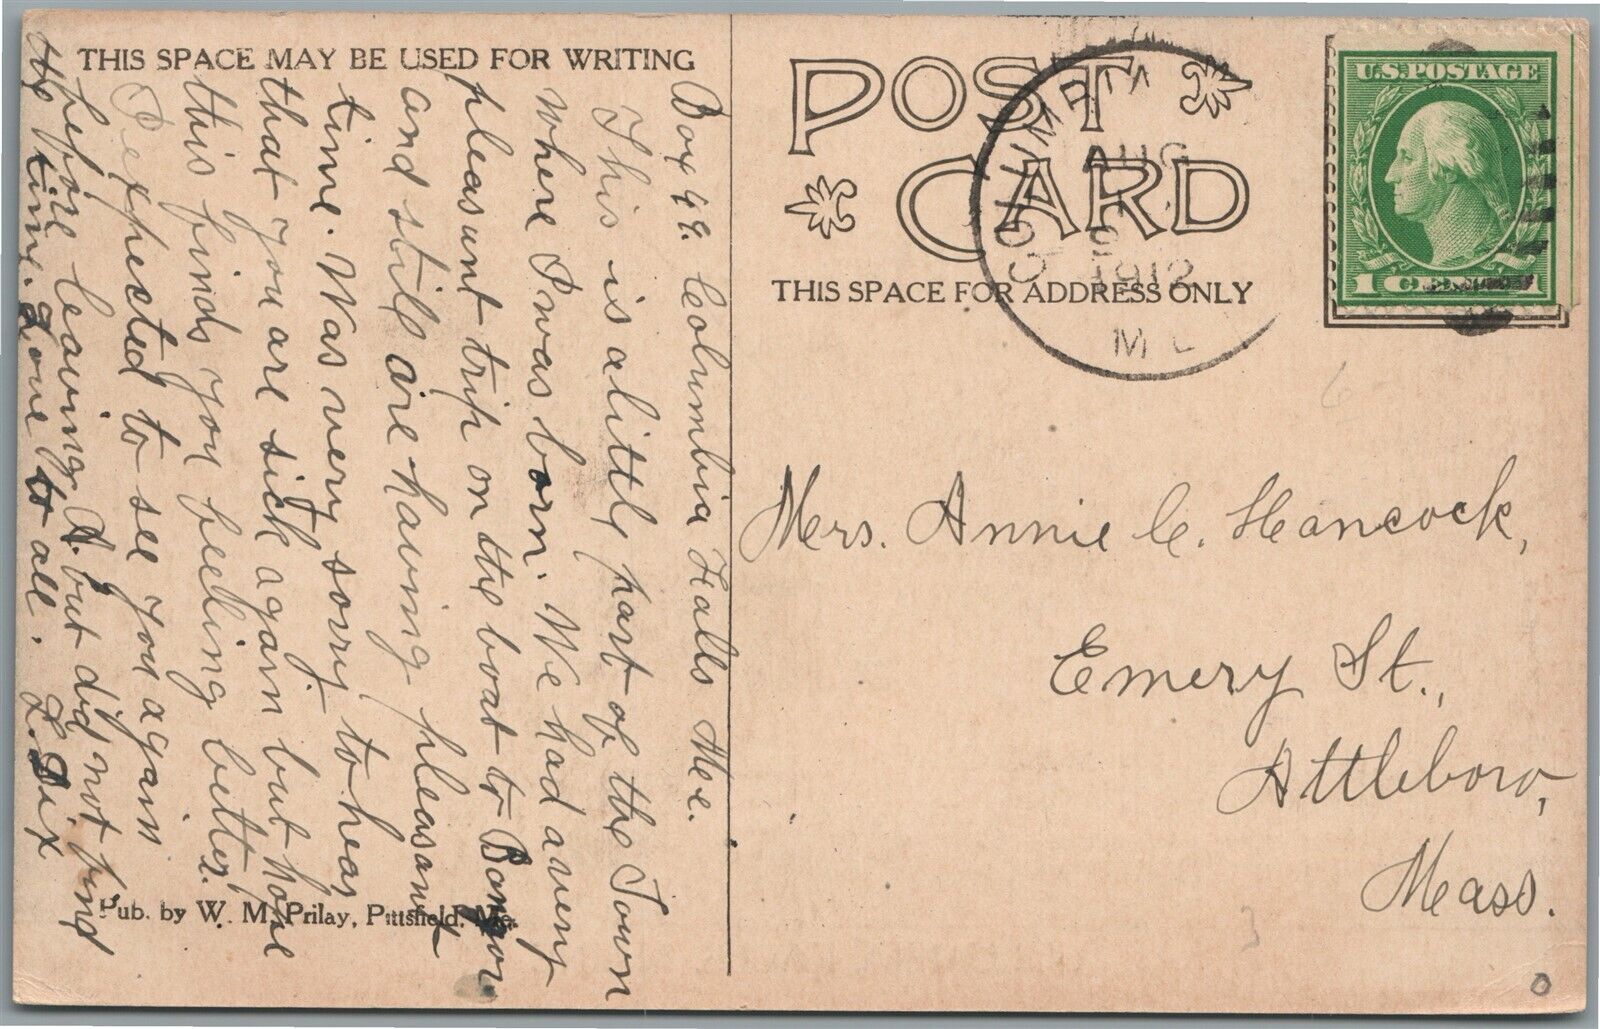 THIS SPACE MAY BE USED FOR WRITING
Box 49. Columbia Falls Me.
This is a little part of the Town
where I was born. We had a very
pleasant trip on the boat to Bangor
and still are having pleasant
time. Was very sorry to hear
that you are sick again but hope
this finds you feeling better.
I expected to see you again
before leaving A. but did not find
the time. Love to all. L. Dix
Pub. by W. M. Prilay, Pittsfield, Me.
POST
CARD
THIS SPACE FOR ADDRESS ONLY
COLUMBIA
AUG
1912
U.S. POSTAGE
1 CENT 1
Mrs. Annie C. Hancock,
Emery St.,
Attleboro,
Mass.
6
3
0